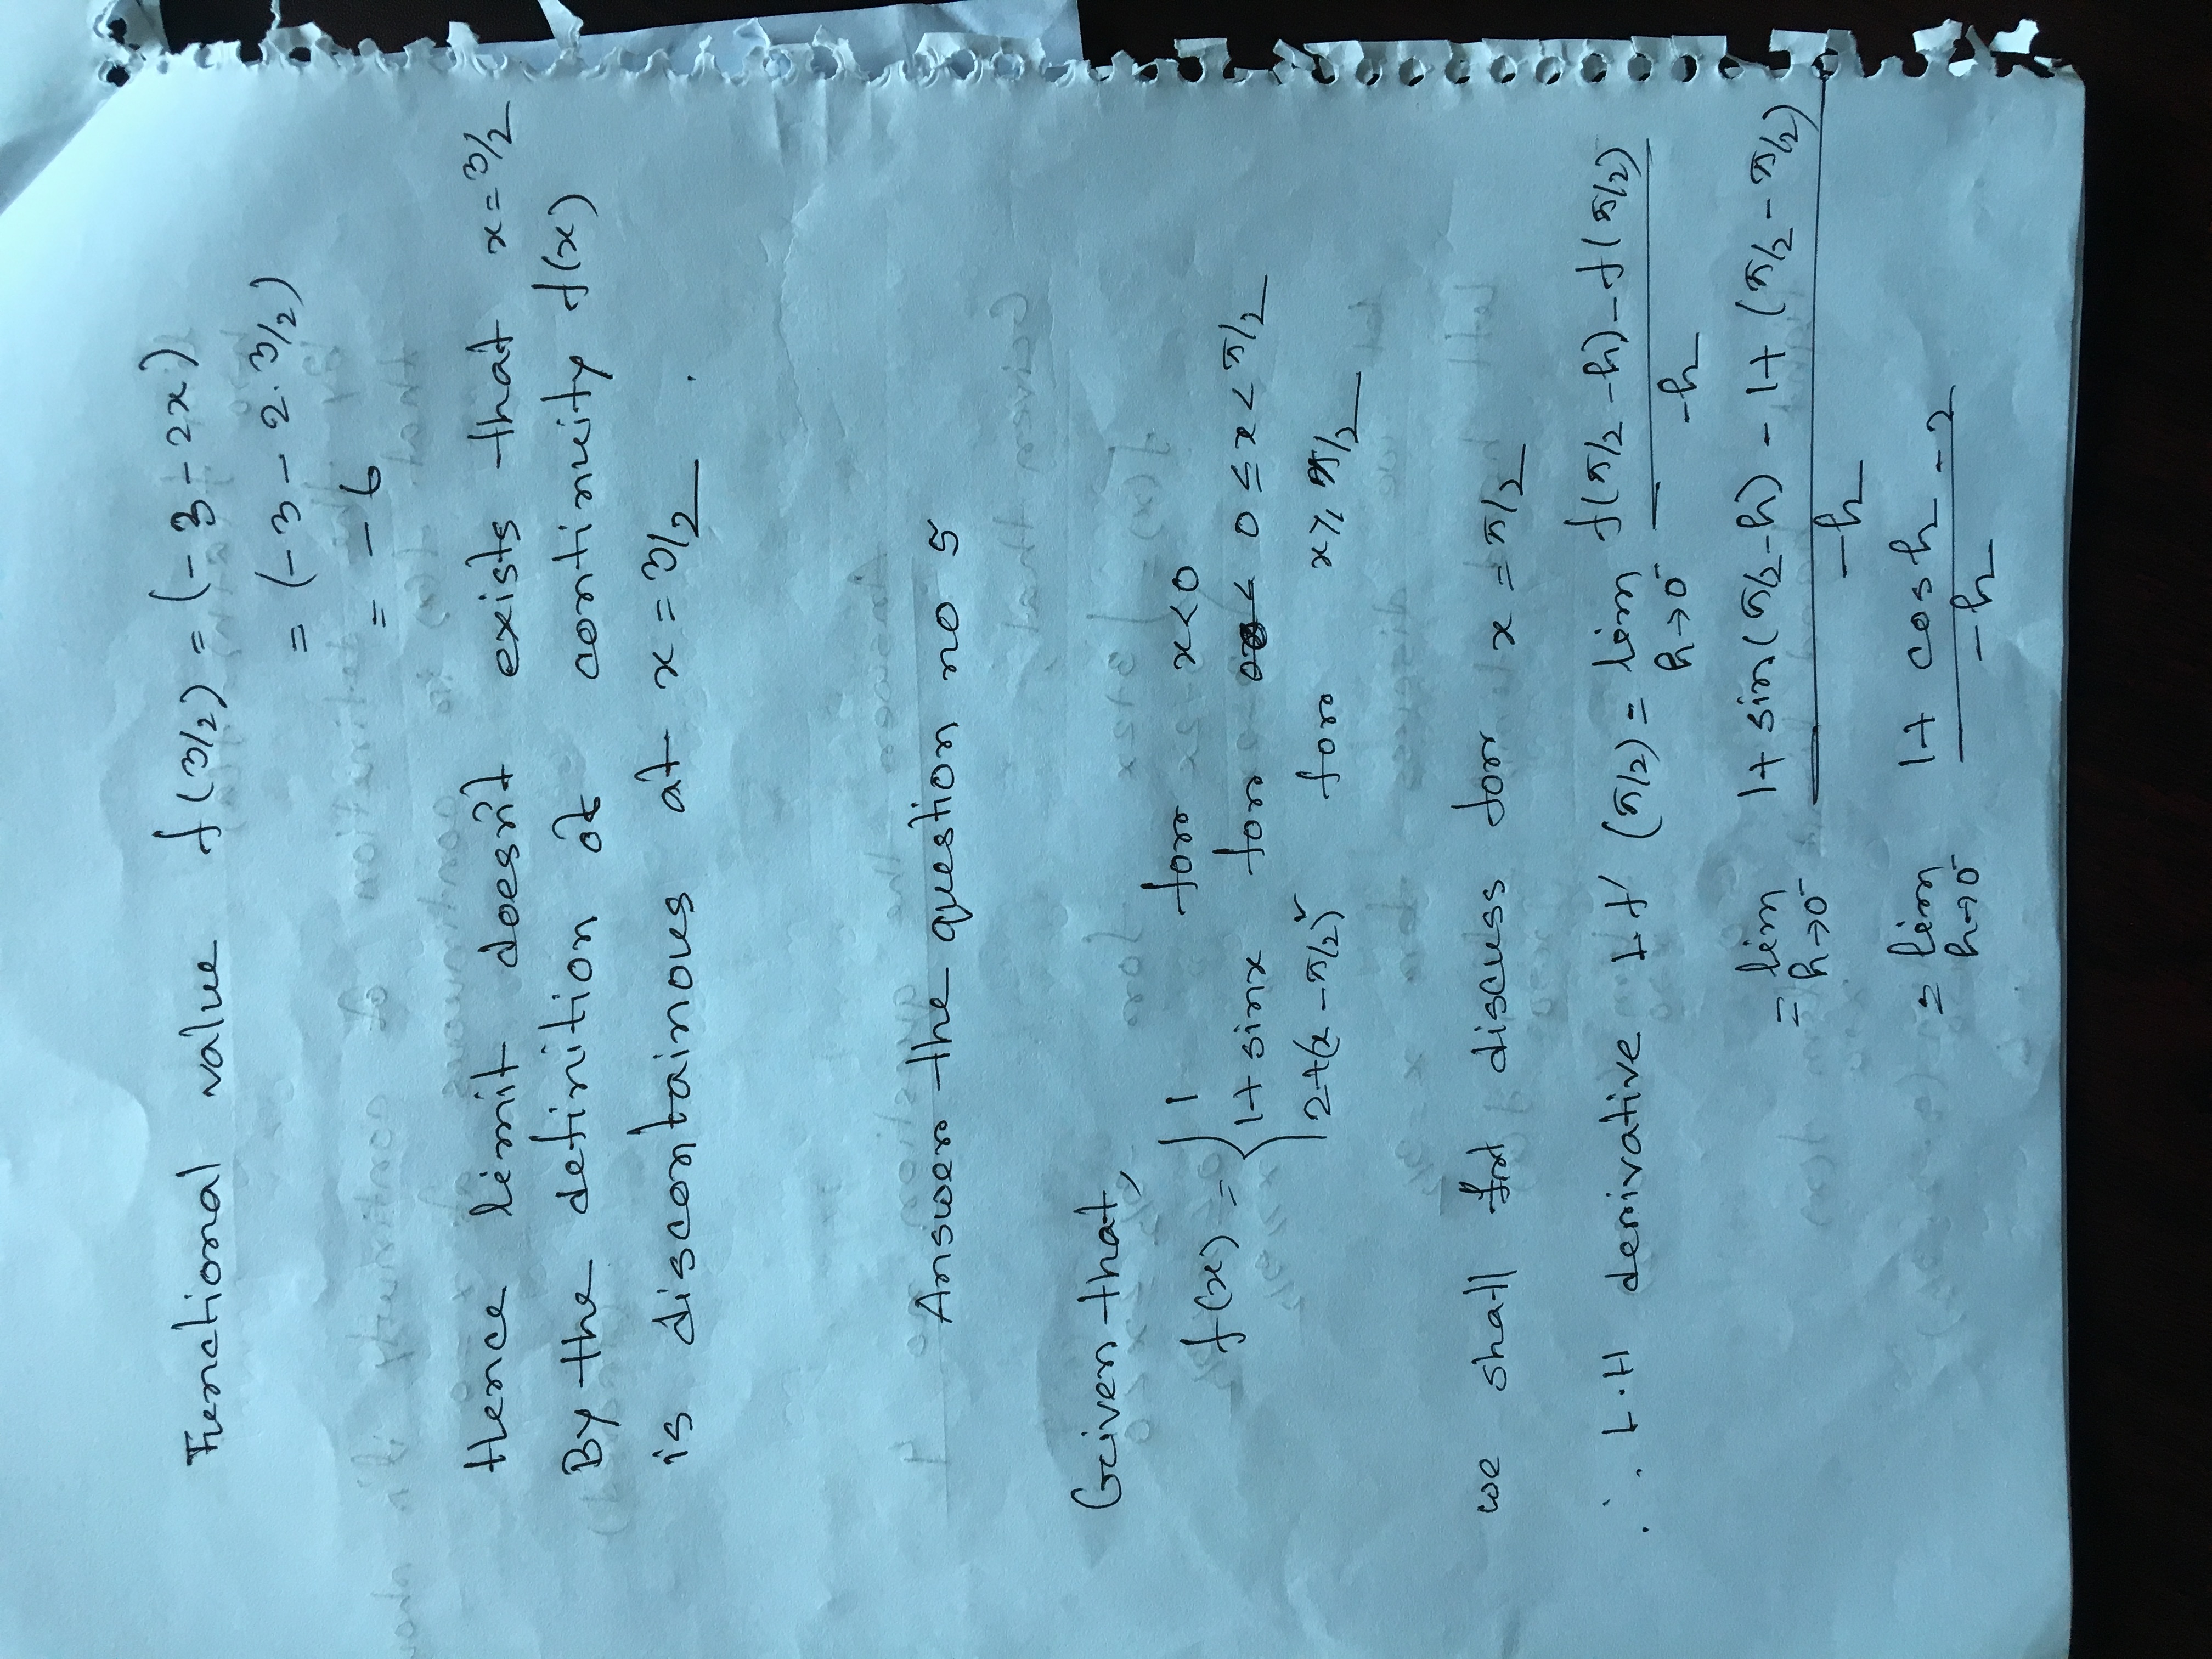 Functional value f(3/2) = (-3-2x)
= (-3-2.3/2)
= -6
Hence limit doesn't exists that x=3/2
By the definition of continuity f(x)
is discontainous at x = 3/2 .
Answer the question no 5
Given that,
f(x) = { 1 for x<0
1+ sinx for 0 ≤ x < π/2
2+(x-π/2)² for x ≥ π/2
we shall discuss for x = π/2
∴ L.H derivative L f' (π/2) = lim h→0⁻ f(π/2-h)-f(π/2) / -h
= lim h→0⁻ 1+ sin(π/2-h) - 1+ (π/2-π/2) / -h
= lim h→0⁻ 1+ cosh - 2 / -h